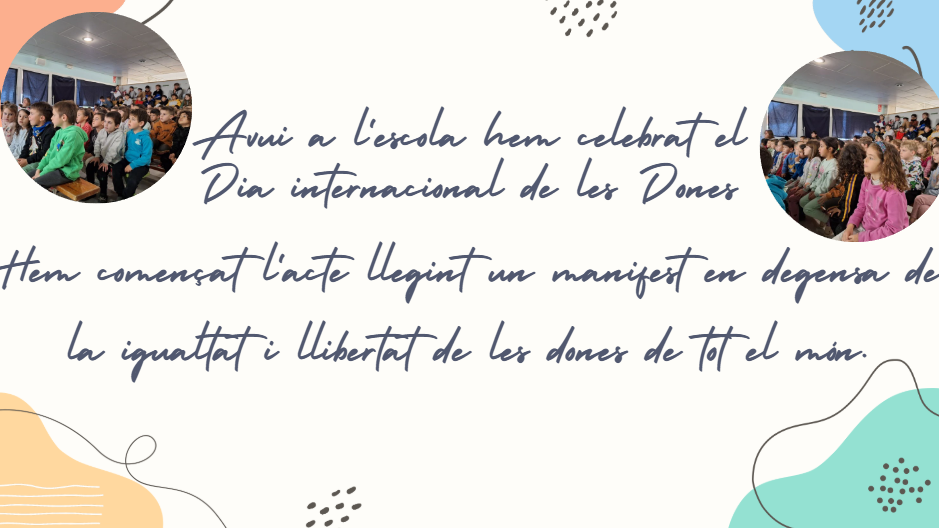 Avui a l'escola hem celebrat el
Dia internacional de les Dones
Hem començat l'acte llegint un manifest en degensa de
la igualtat i llibertat de les dones de tot el món.